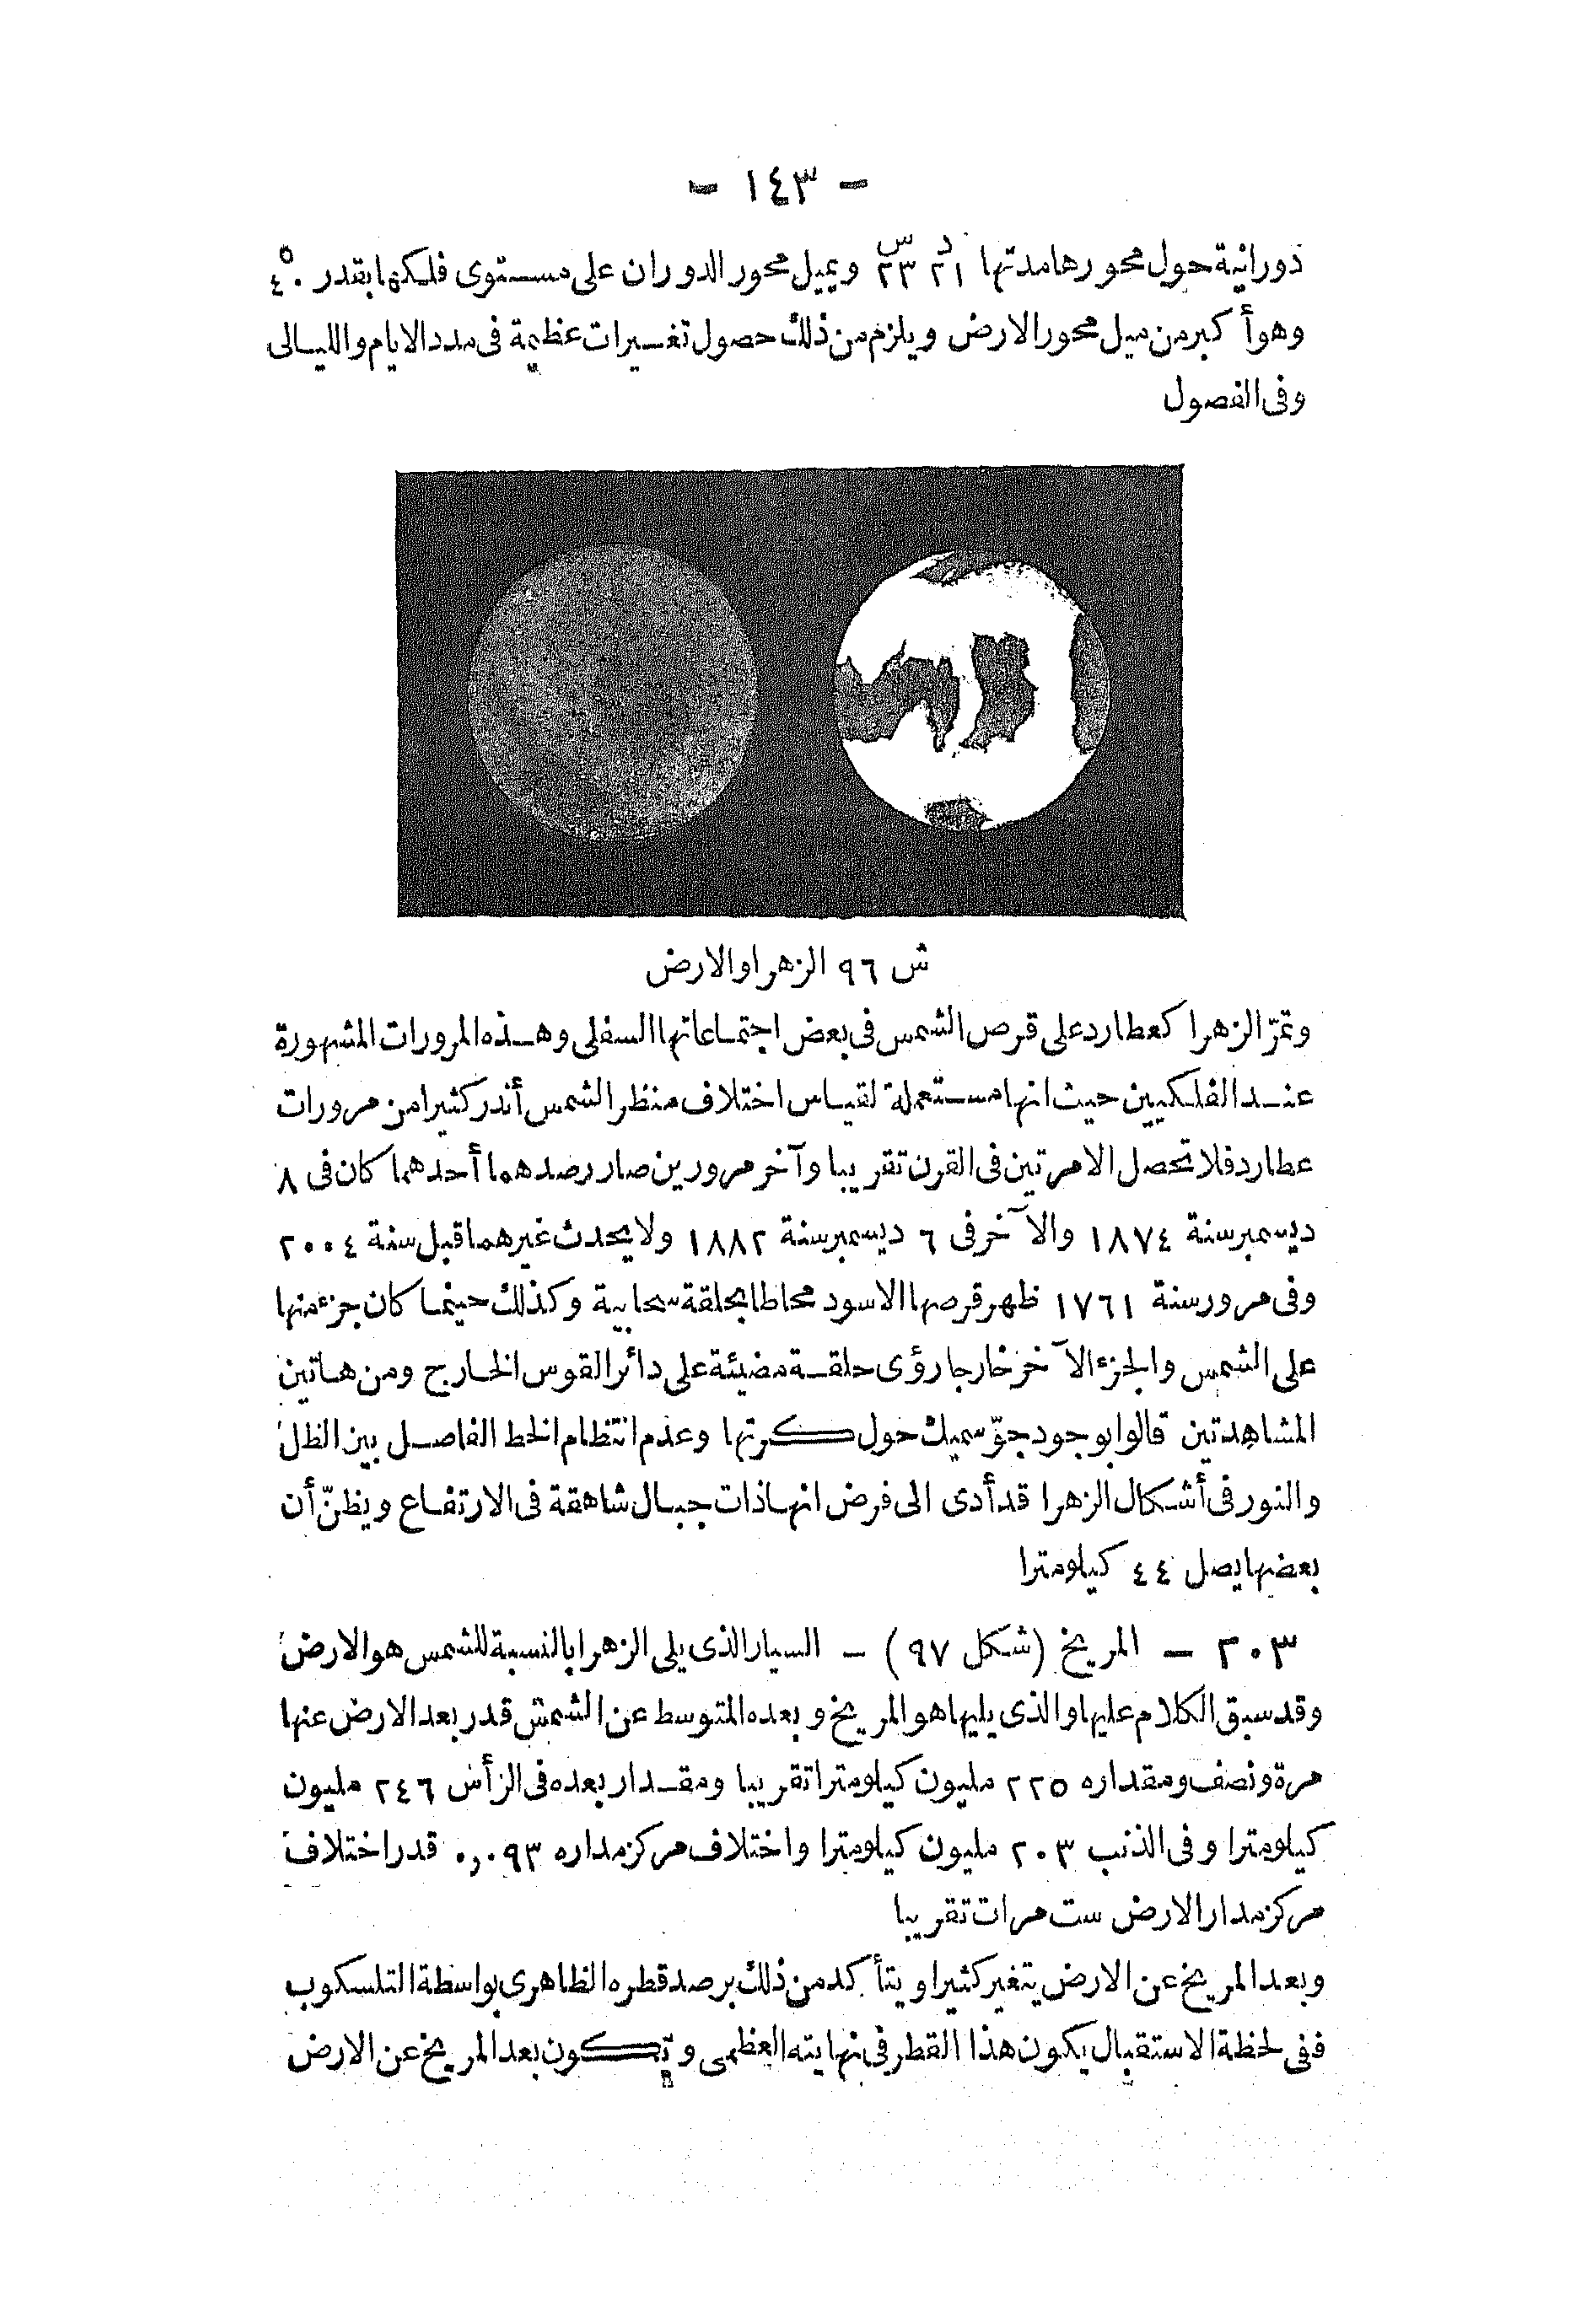 - ١٤٣ -
دورانية حول محورها مدتها ٢١ د ٢٣ س ويميل محور الدوران على مستوى فلكها بقدر ٤٠°
وهو أكبر من ميل محور الارض ويلزم من ذلك حصول تغييرات عظيمة فى مدد الايام والليالى
وفى الفصول
ش ٩٦ الزهرا والارض
وتمرّ الزهرا كعطارد على قرص الشمس فى بعض اجتماعاتها السفلى وهذه المرورات المشهورة
عند الفلكيين حيث انها مستعملة لقياس اختلاف منظر الشمس أندر كثيرا من مرورات
عطارد فلا تحصل الا مرتين فى القرن تقريبا وآخر مرورين صار رصدهما أحدهما كان فى ٨
ديسمبر سنة ١٨٧٤ والآخر فى ٦ ديسمبر سنة ١٨٨٢ ولا يحدث غيرهما قبل سنة ٢٠٠٤
وفى مرور سنة ١٧٦١ ظهر قرصها الاسود محاطا بحلقة سحابية وكذلك حينما كان جزء منها
على الشمس والجزء الآخر خارجا رؤى حلقة مضيئة على دائر القوس الخارج ومن هاتين
المشاهدتين قالوا بوجود جوّ سميك حول كرتها وعدم انتظام الخط الفاصل بين الظل
والنور فى أشكال الزهرا قد أدى الى فرض انها ذات جبال شاهقة فى الارتفاع ويظنّ أن
بعضها يصل ٤٤ كيلومترا
٢٠٣ - المريخ (شكل ٩٧) - السيار الذى يلى الزهرا بالنسبة للشمس هو الارض
وقد سبق الكلام عليها والذى يليها هو المريخ وبعده المتوسط عن الشمس قدر بعد الارض عنها
مرة ونصف ومقداره ٢٢٥ مليون كيلومترا تقريبا ومقدار بعده فى الرأس ٢٤٦ مليون
كيلومترا وفى الذنب ٢٠٣ مليون كيلومترا واختلاف مركز مداره ٠,٠٩٣ قدر اختلاف
مركز مدار الارض ست مرات تقريبا
وبعد المريخ عن الارض يتغير كثيرا ويتأكد من ذلك برصد قطره الظاهرى بواسطة التلسكوب
ففى لحظة الاستقبال يكون هذا القطر فى نهايته العظمى ويكون بعد المريخ عن الارض